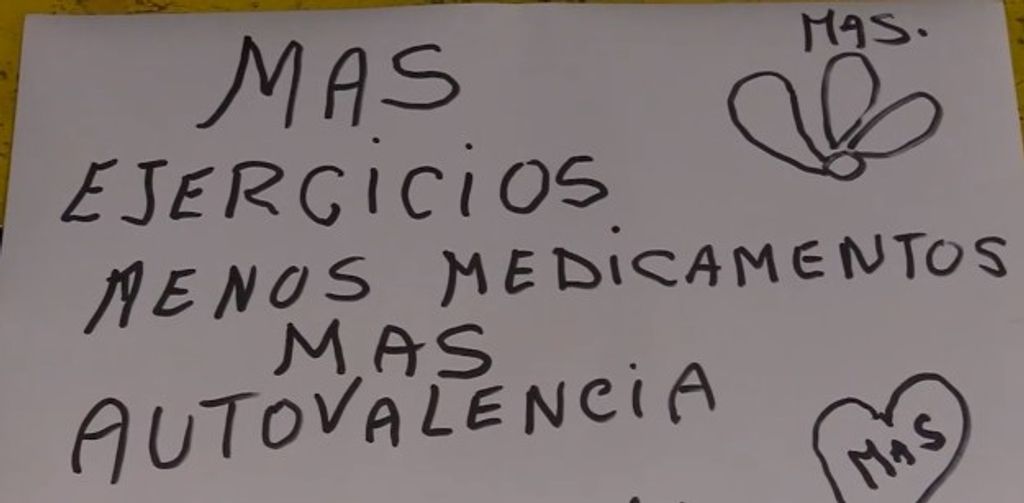 MAS.
MAS
EJERCiCiOS
MENOS MEDiCAMENTOS
MAS
AUTOVALENCiA
MAS